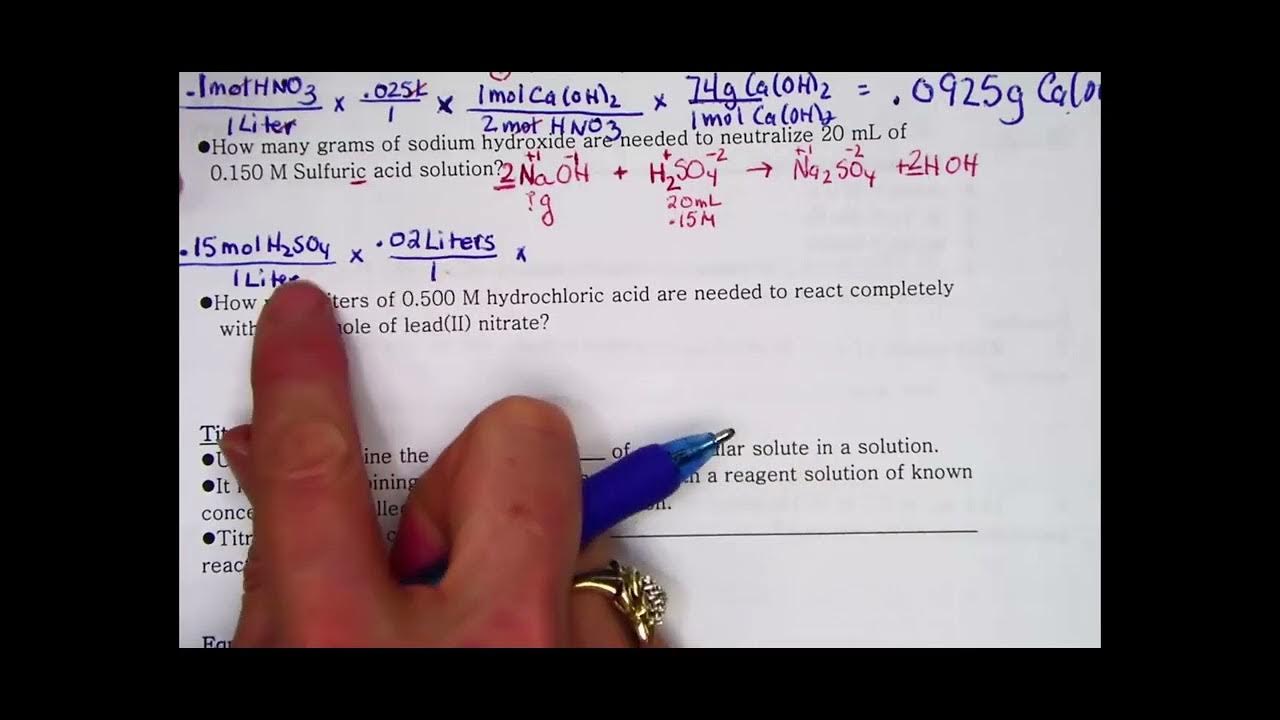 .1mol HNO3 x .025L x 1mol Ca(OH)2 x 74g Ca(OH)2 = .0925g Ca(O
1 Liter 1 2 mol HNO3 1mol Ca(OH)2
●How many grams of sodium hydroxide are needed to neutralize 20 mL of
0.150 M Sulfuric acid solution? 2NaOH + H2SO4 → Na2SO4 + 2HOH
+1 -1 + -2 +1 -2
?g 20mL
.15M
.15mol H2SO4 x .02 Liters x
1 Liter 1
●How iters of 0.500 M hydrochloric acid are needed to react completely
with ole of lead(II) nitrate?
Tit
●U ine the of lar solute in a solution.
●It ining a reagent solution of known
conce lle on.
●Titr c
reac
Equ